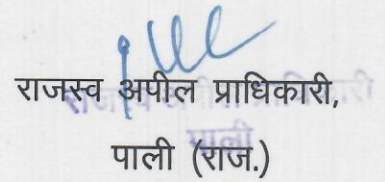 राजस्व अपील प्राधिकारी,
पाली (राज.)